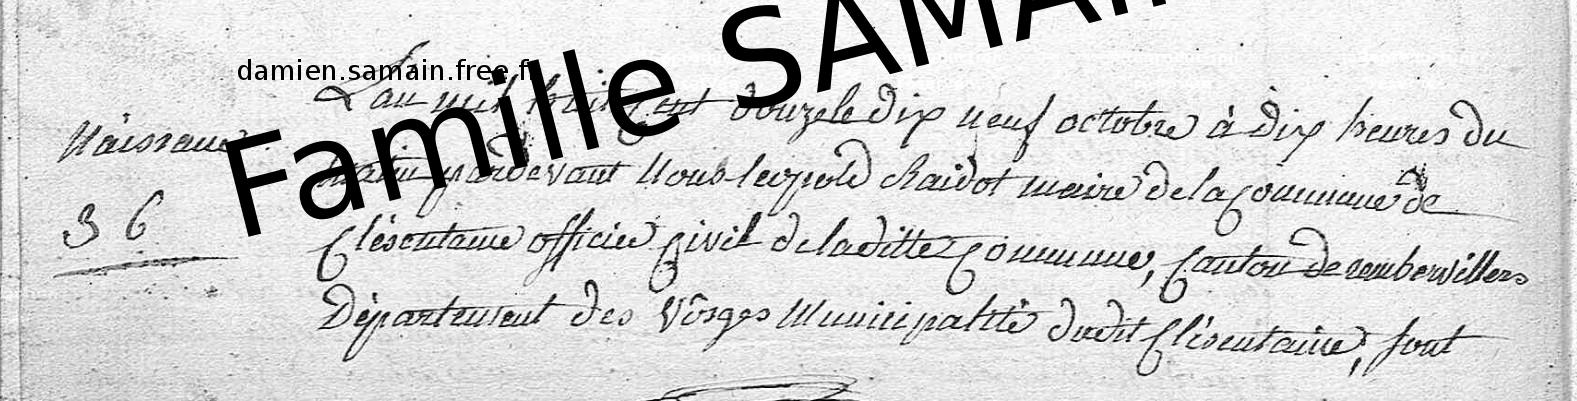 Famille SAMAIN
damien.samain.free.fr
L'an mil huit cent douze le dix neuf octobre à dix heures du
Naissance
matin pardevant Nous leopold Raidot maire de la Commune de
36
Clésentaine officier Civil de la ditte Commune, Canton de rembervillers
Département des Vôsges Municipalité dudit Clésentaine, sont